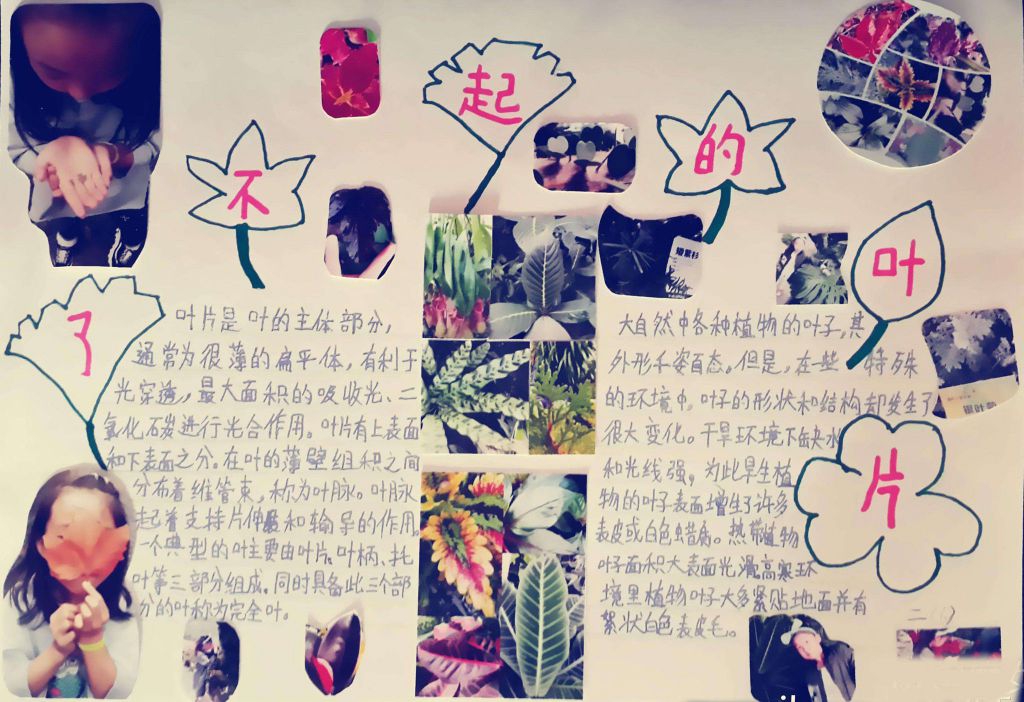 了不起的叶片
叶片是叶的主体部分，
通常为很薄的扁平体，有利于
光穿透，最大面积的吸收光、二
氧化碳进行光合作用。叶片有上表面
和下表面之分。在叶的薄壁组积之间
分布着维管束，称为叶脉。叶脉
起着支持片伸展和输导的作用。
一个典型的叶主要由叶片、叶柄、托
叶等三部分组成。同时具备此三个部
分的叶称为完全叶。
大自然中各种植物的叶子，其
外形千姿百态。但是，在一些特殊
的环境中，叶子的形状和结构却发生了
很大变化。干旱环境下缺水
和光线强，为此旱生植
物的叶子表面增生了许多
表皮或白色蜡质。热带植物
叶子面积大表面光滑。高寒环
境里植物叶子大多紧贴地面并有
絮状白色表皮毛。